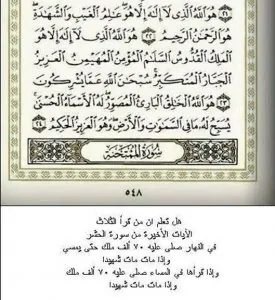 ٢١ هُوَ ٱللَّهُ ٱلَّذِى لَآ إِلَٰهَ إِلَّا هُوَ عَٰلِمُ ٱلْغَيْبِ وَٱلشَّهَٰدَةِ
هُوَ ٱلرَّحْمَٰنُ ٱلرَّحِيمُ ٢٢ هُوَ ٱللَّهُ ٱلَّذِى لَآ إِلَٰهَ إِلَّا هُوَ
ٱلْمَلِكُ ٱلْقُدُّوسُ ٱلسَّلَٰمُ ٱلْمُؤْمِنُ ٱلْمُهَيْمِنُ ٱلْعَزِيزُ
ٱلْجَبَّارُ ٱلْمُتَكَبِّرُ سُبْحَٰنَ ٱللَّهِ عَمَّا يُشْرِكُونَ
٢٣ هُوَ ٱللَّهُ ٱلْخَٰلِقُ ٱلْبَارِئُ ٱلْمُصَوِّرُ لَهُ ٱلْأَسْمَآءُ ٱلْحُسْنَىٰ
يُسَبِّحُ لَهُۥ مَا فِى ٱلسَّمَٰوَٰتِ وَٱلْأَرْضِ وَهُوَ ٱلْعَزِيزُ ٱلْحَكِيمُ ٢٤
سُورَةُ المُمْتَحنَة
٥٤٨
هل تعلم ان من قرأ الثلاث
الآيات الأخيرة من سورة الحشر
في النهار صلى عليه ٧٠ ألف ملك حتى يمسي
وإذا مات مات شهيدا
وإذا قرأها في المساء صلى عليه ٧٠ ألف ملك
وإذا مات مات شهيدا